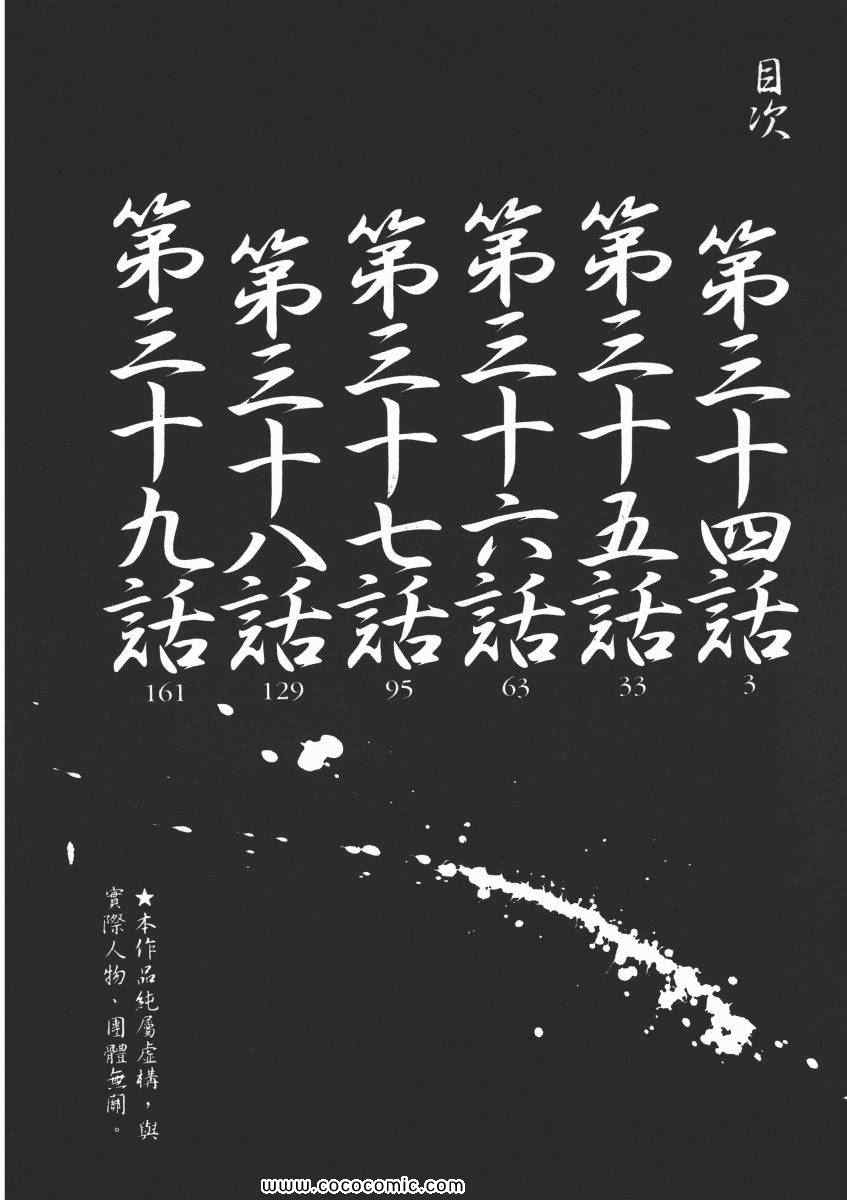 目次
第三十四話
3
第三十五話
33
第三十六話
63
第三十七話
95
第三十八話
129
第三十九話
161
★本作品純屬虛構，與
實際人物、團體無關。
www.cococomic.com